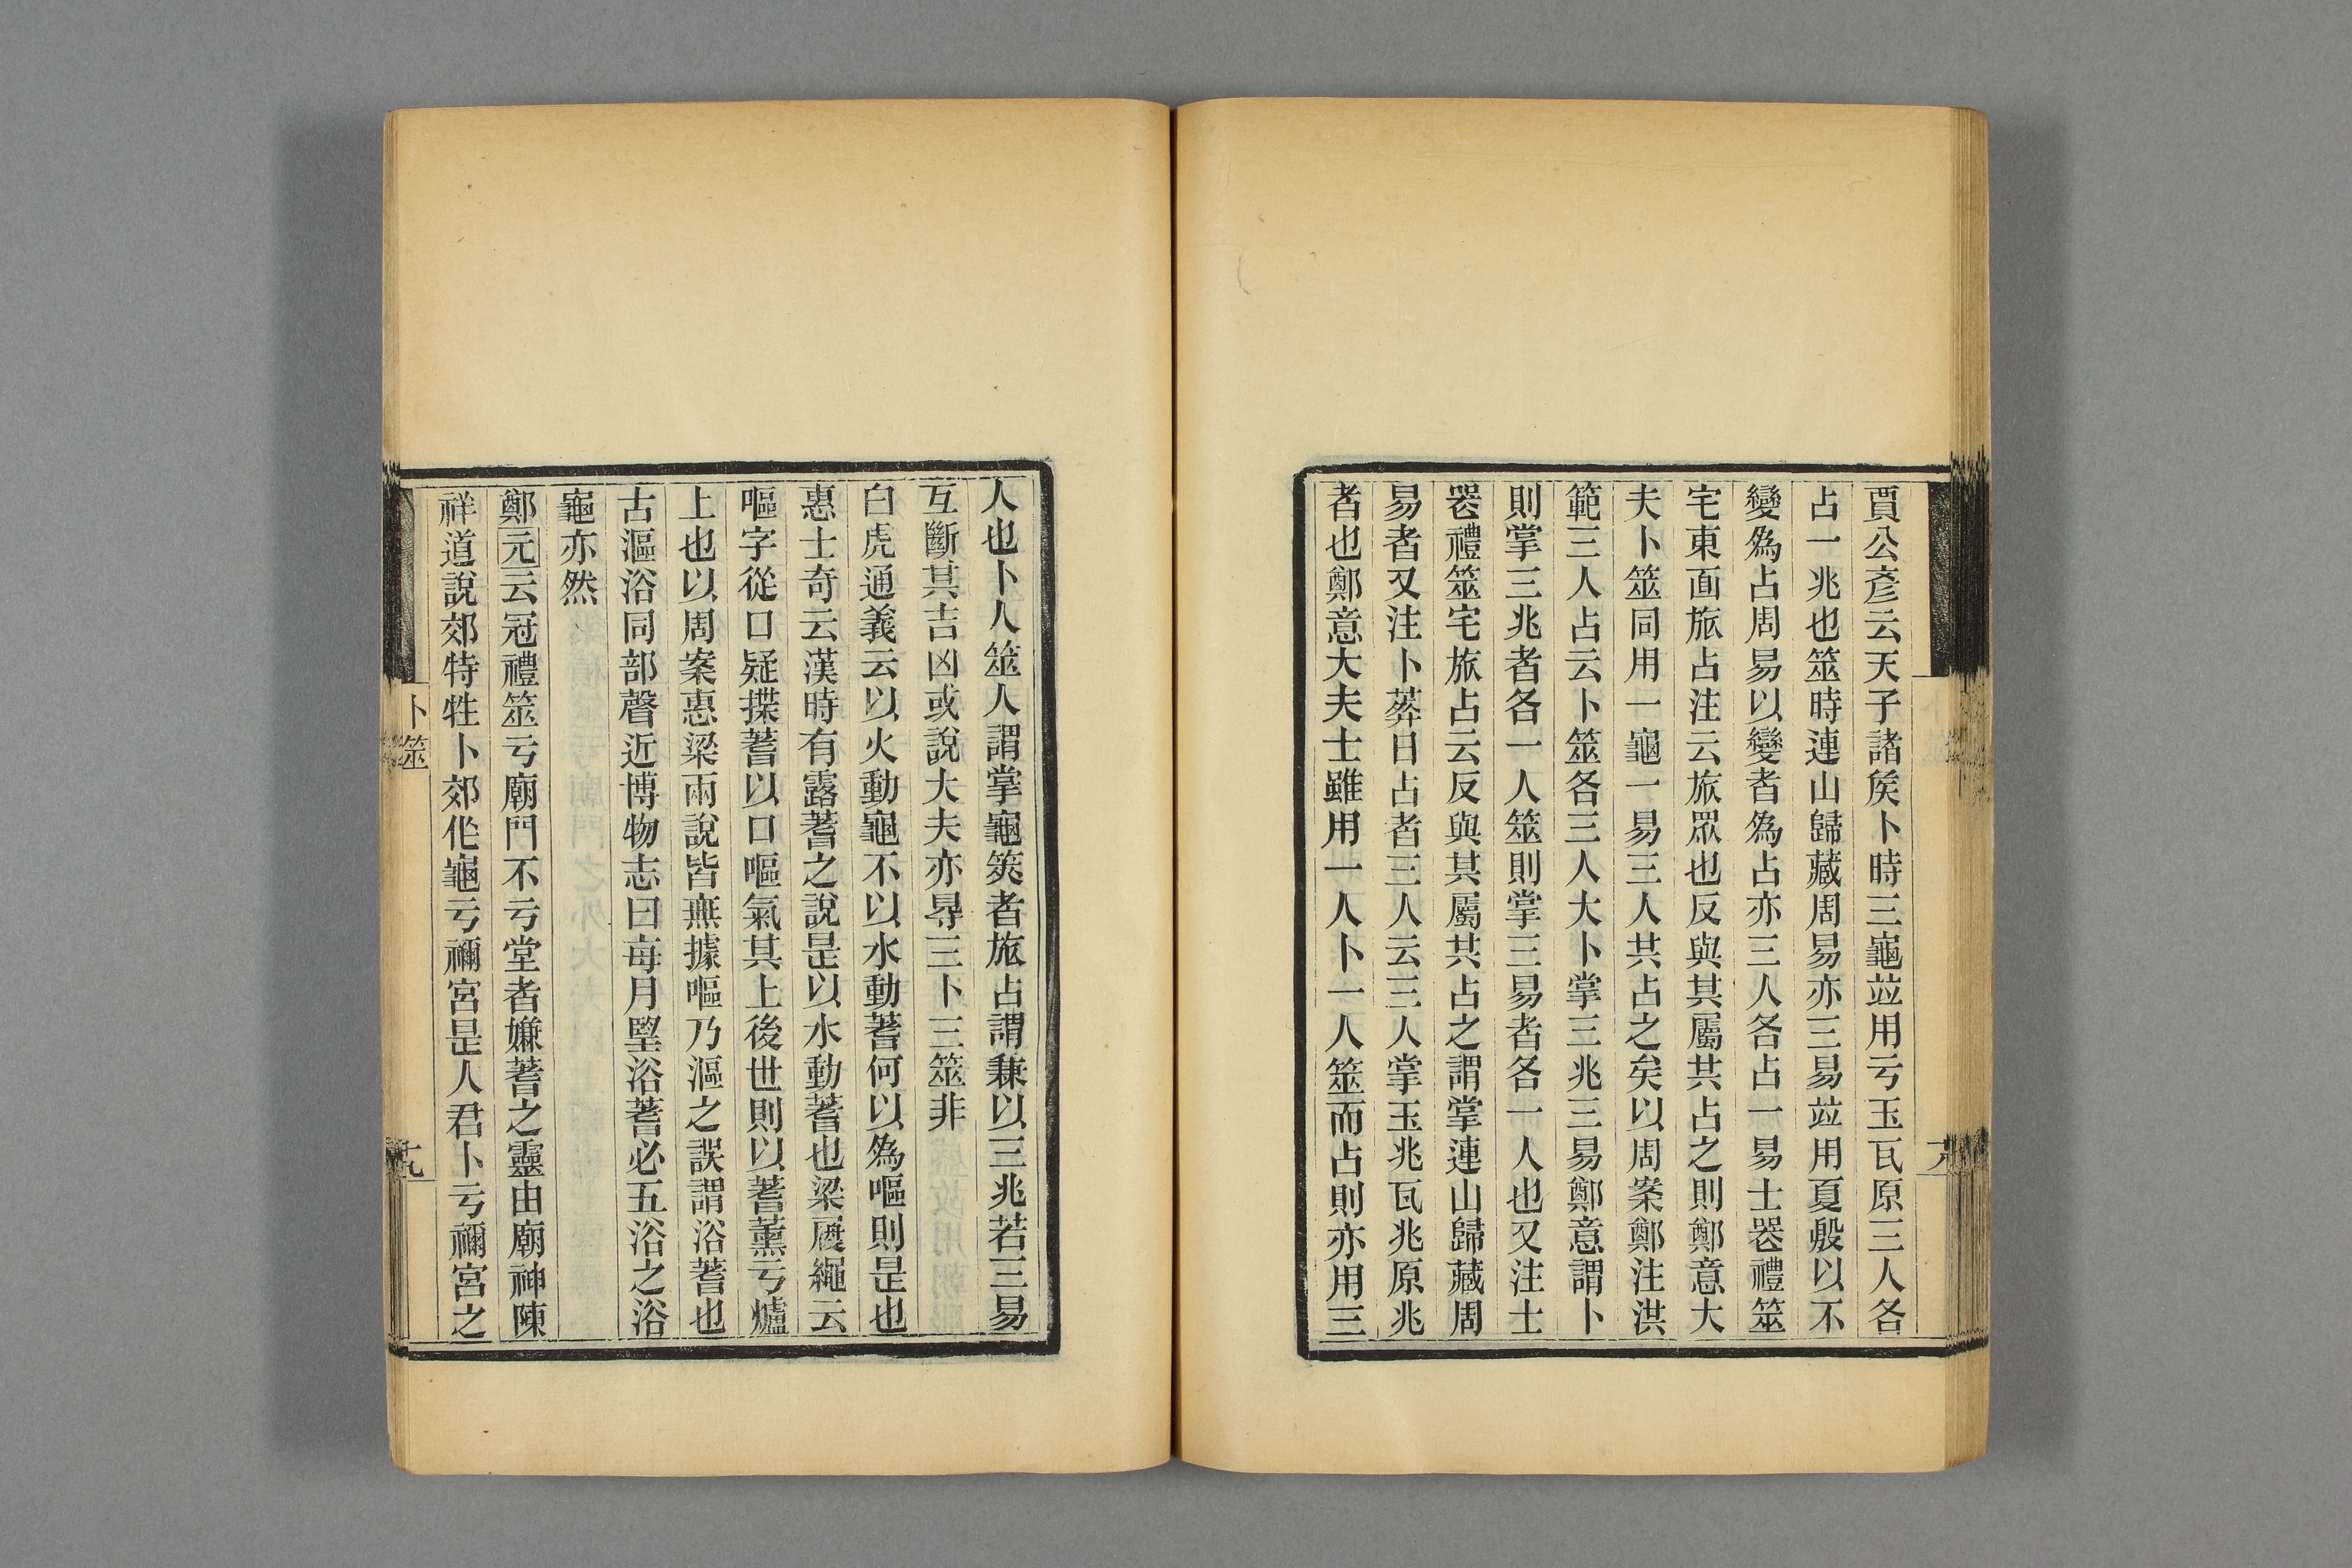 賈公彥云天子諸矦卜時三龜竝用亏玉瓦原三人各
占一兆也筮時連山歸藏周易亦三易竝用夏殷以不
變爲占周易以變者爲占亦三人各占一易士喪禮筮
宅東面旅占注云旅眾也反與其屬共占之則鄭意大
夫卜筮同用一龜一易三人共占之矣以周案鄭注洪
範三人占云卜筮各三人大卜掌三兆三易鄭意謂卜
則掌三兆者各一人筮則掌三易者各一人也又注士
喪禮筮宅旅占云反與其屬共占之謂掌連山歸藏周
易者又注卜葬日占者三人云三人掌玉兆瓦兆原兆
者也鄭意大夫士雖用一人卜一人筮而占則亦用三
卜筮
人也卜人筮人謂掌龜筴者旅占謂兼以三兆若三易
互斷其吉凶或說大夫亦㝵三卜三筮非
白虎通義云以火動龜不以水動蓍何以爲嘔則是也
惠士奇云漢時有露蓍之說是以水動蓍也梁履繩云
嘔字從口疑揲蓍以口嘔氣其上後世則以蓍薰亏爐
上也以周案惠梁兩說皆無據嘔乃漚之誤謂浴蓍也
古漚浴同部聲近博物志曰每月望浴蓍必五浴之浴
龜亦然
鄭元云冠禮筮亏廟門不亏堂者嫌蓍之靈由廟神陳
祥道說郊特牲卜郊作龜亏禰宮是人君卜亏禰宮之
卜筮
十九